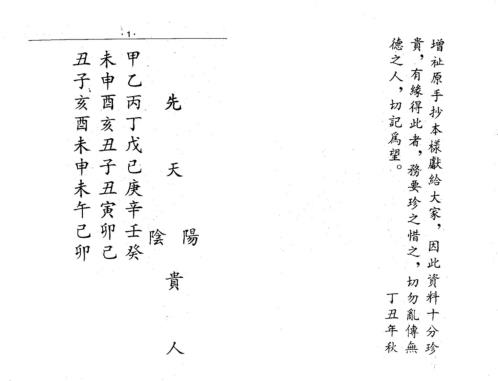 增祉原手抄本樣獻給大家，因此資料十分珍
貴，有緣得此者，務要珍之惜之，切勿亂傳無
德之人，切記爲望。
丁丑年秋
·1·
先天陽陰貴人
甲乙丙丁戊己庚辛壬癸
未申酉亥丑子丑寅卯己
丑子亥酉未申未午己卯